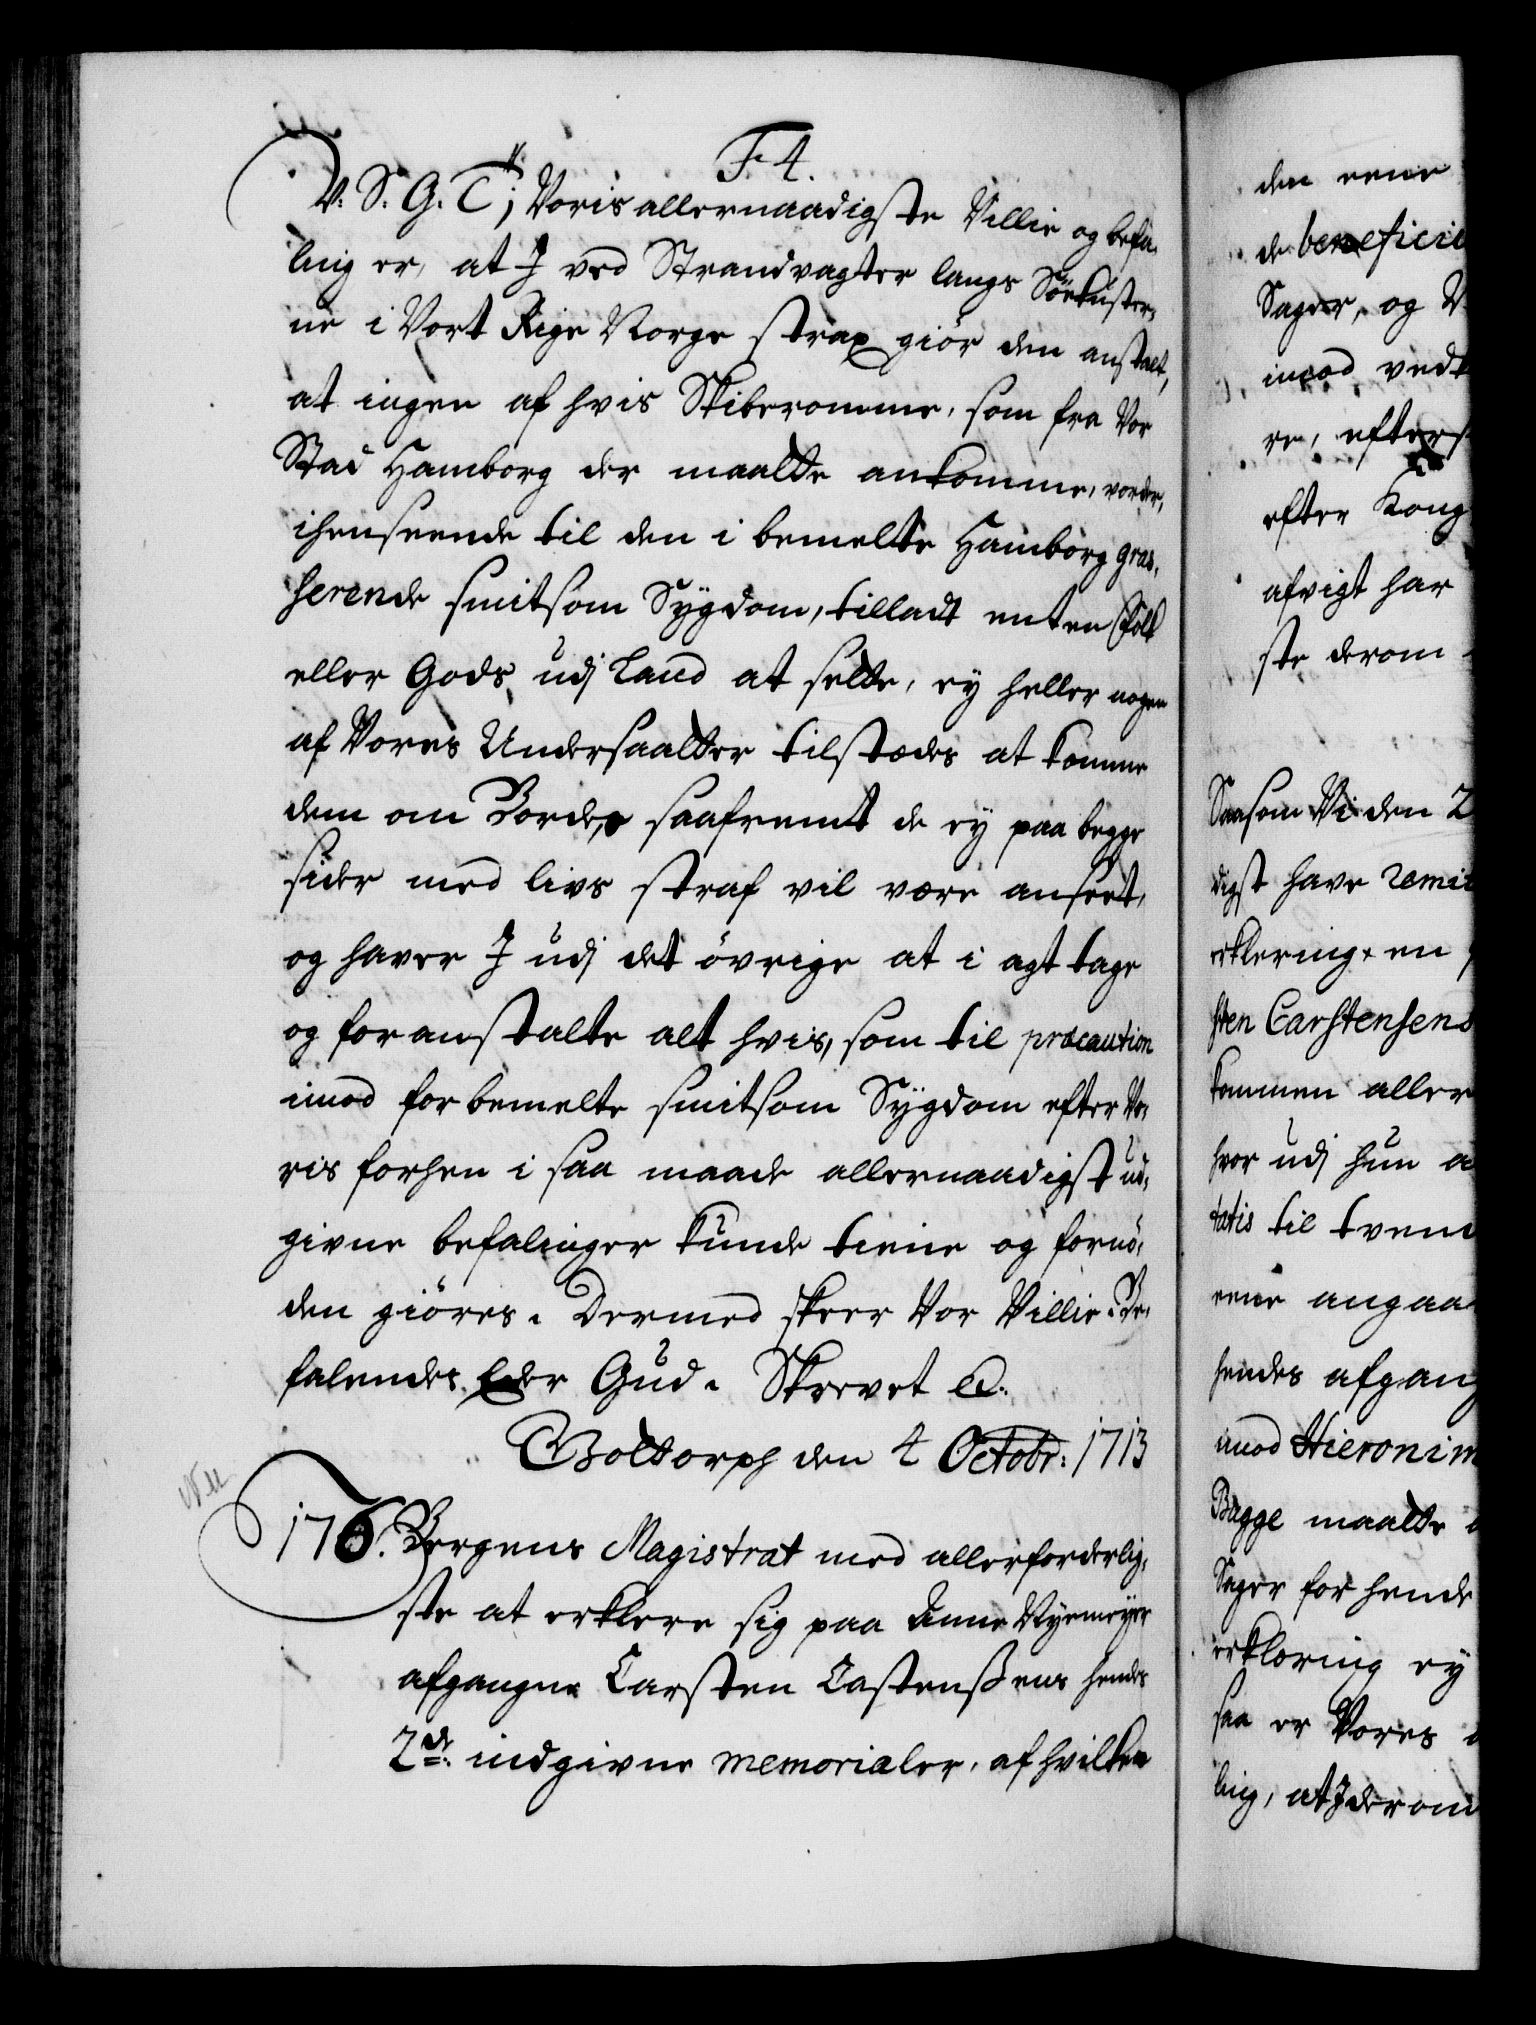 F 4.
V. S. G. T; Voris allernaadigste Villie og befa-
ling er, at I ved Strandvagter langs Söekuster-
ne i Vort Rige Norge strax giör den anstalt,
at ingen af hvis Skiberomme, som fra Vor
Stad Hamborg der maatte ankomme, vorder,
ihenseende til den i bemelte Hamborg gras-
serende smitsom Sygdom, tilladt enten Folk
eller Gods udj Land at sette, ey heller nogen
af Vores Undersaatter tilstædes at komme
dem om Borde, saafremt de ey paa begge
sider med livs straf vil være anseet,
og haver I udj det övrige at i agt tage
og foranstalte alt hvis, som til præcaution
imod forbemelte smitsom Sygdom efter Vo-
ris forhen i saa maade allernaadigst ud-
givne befalinger kunde tiene og fornö-
den giöres. Dermed skeer Vor Villie. Be-
falendes Eder Gud. Skrevet &.
Gottorph den 4 Octobr: 1713
176. Bergens Magistrat med allerforderlig-
ste at erklere sig paa Anne Nyemeyer
afgangne Carsten Castenssens hendes
2de indgivne memorialer, af hvilken
den eene
de beneficie
Sager, og V
imod vedk
re, efters
efter Kong
afvigt har
ste derom
Saasom Vi den 2
digst have remit
erklering en
sten Carstensens
kommen aller
hvor udj hun a
tatis til tvend
eene angaa
hendes afgang
imod Hieronim
Bagge maatte
Sager for hende
erklæring ey
saa er Vores
ling, at I derom